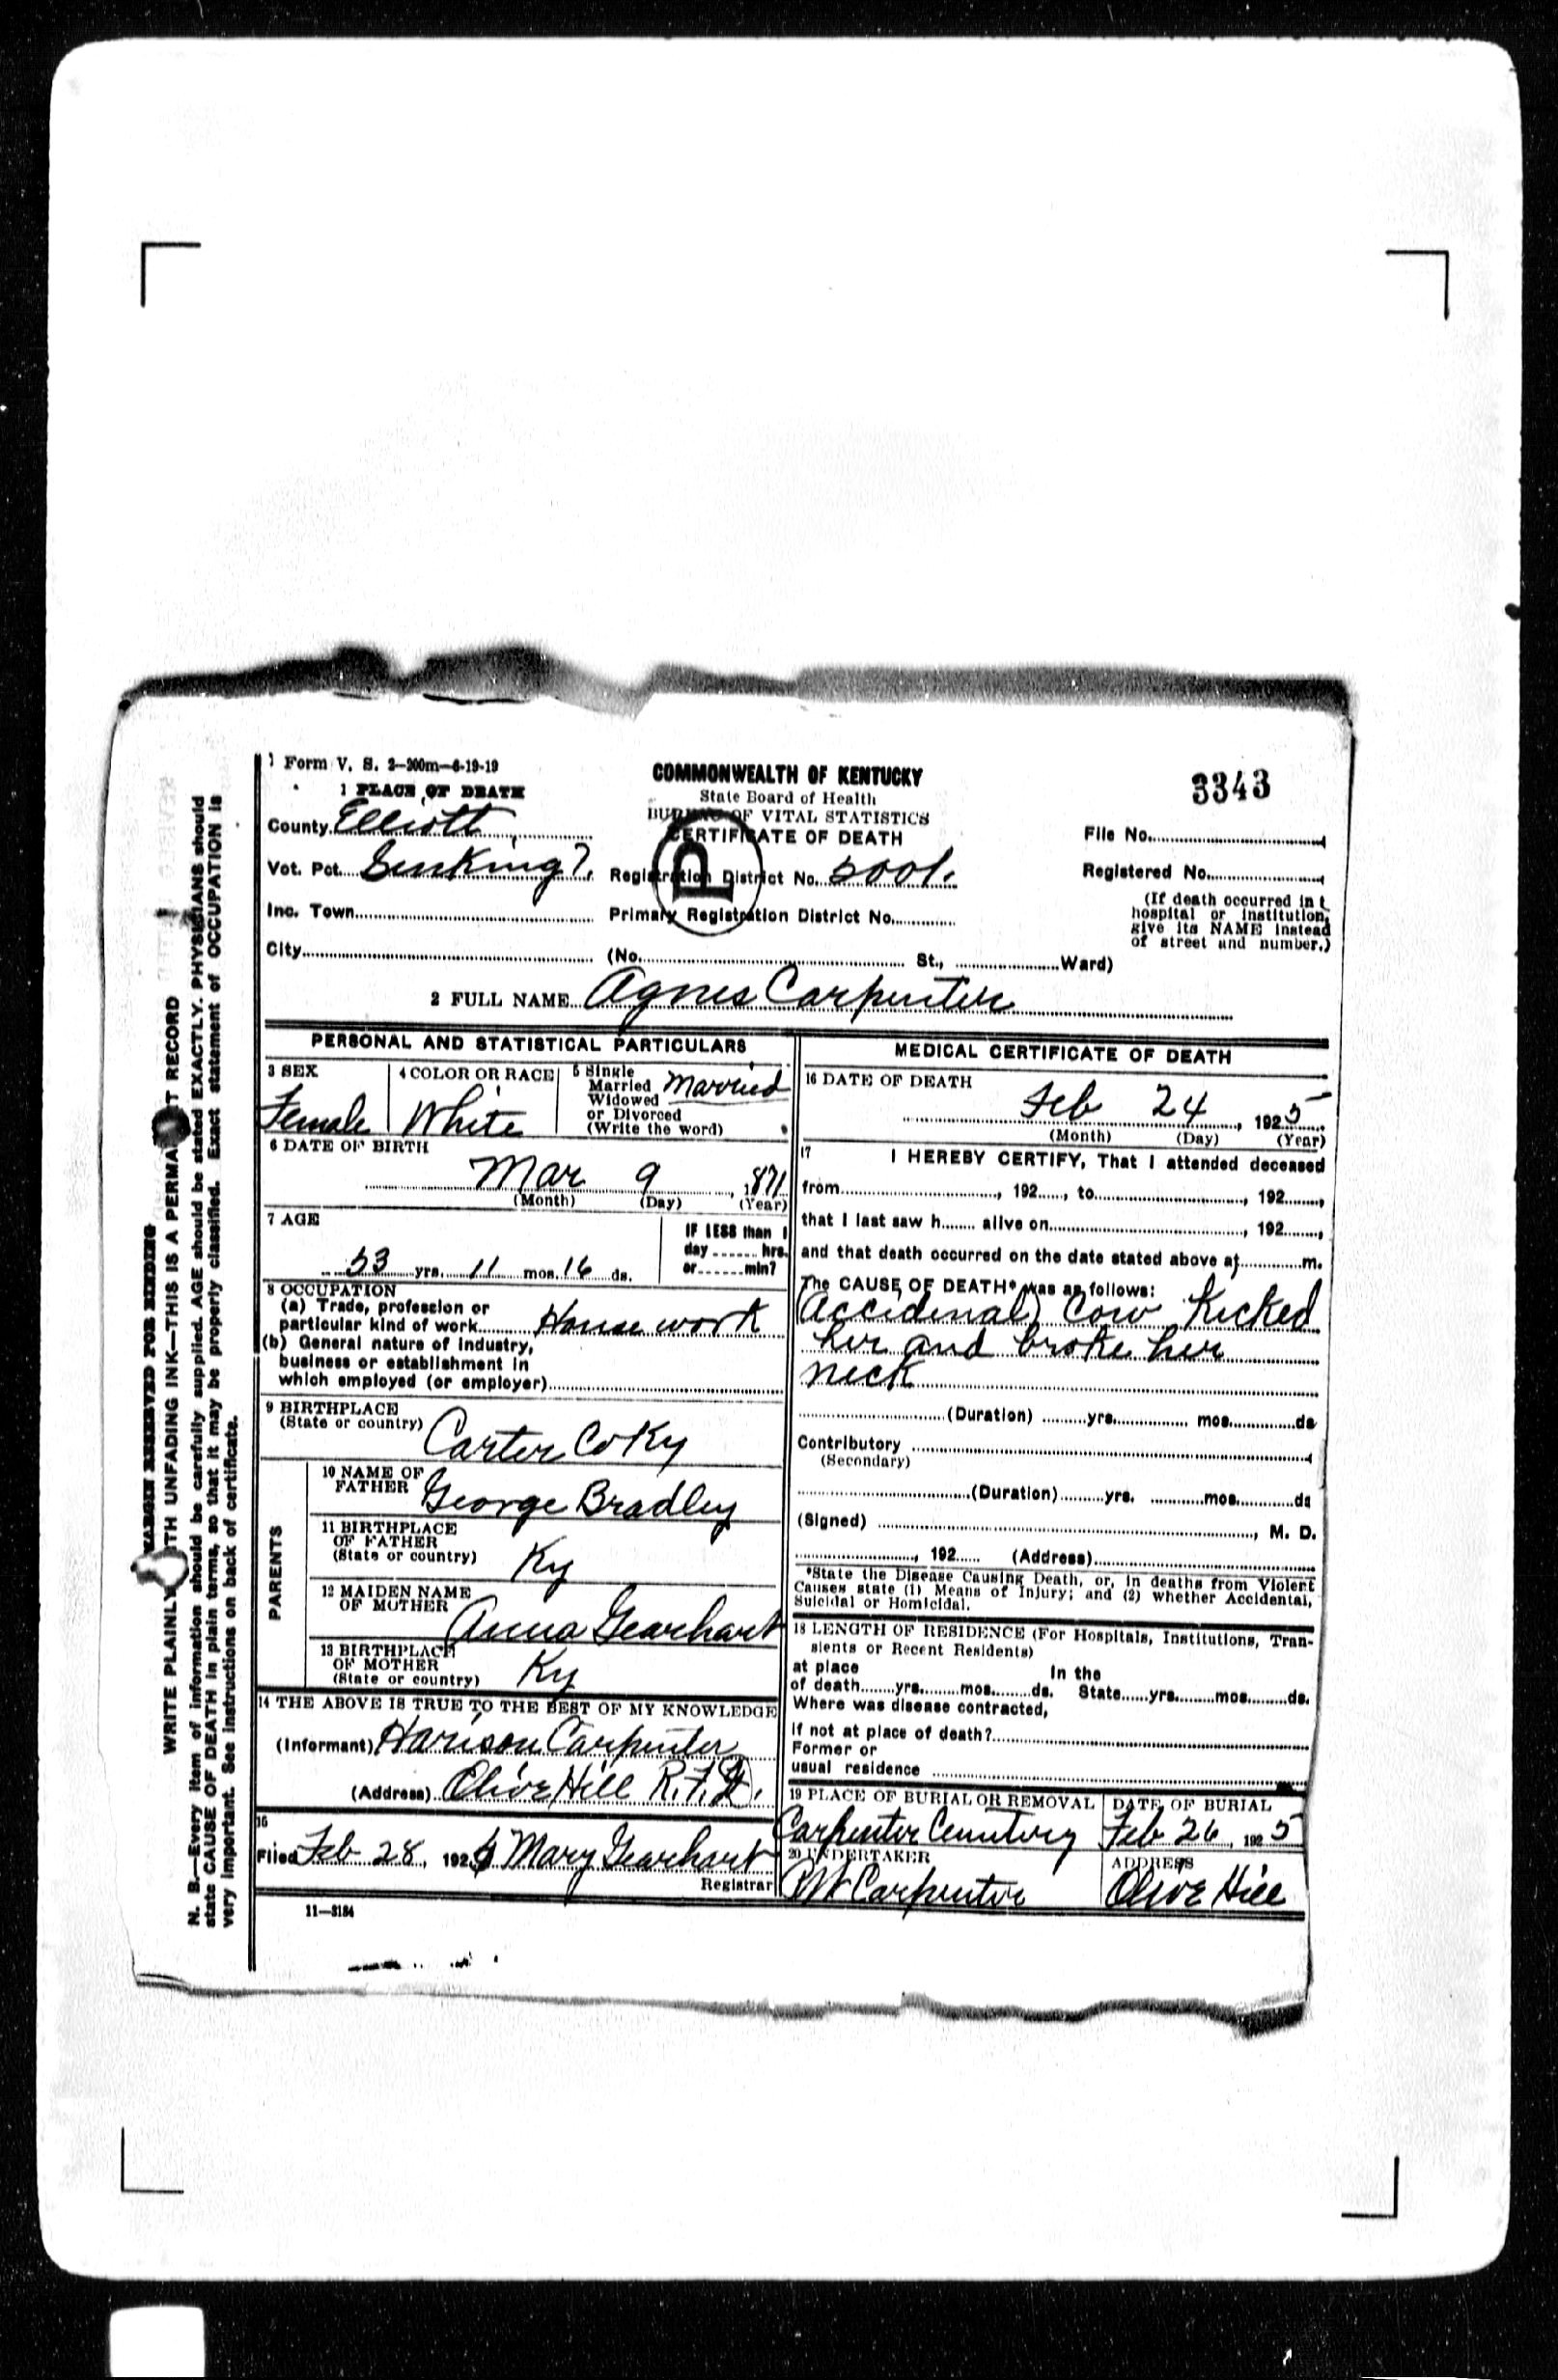 Form V. S. 2-200m-6-19-19
1 PLACE OF DEATH
COMMONWEALTH OF KENTUCKY
State Board of Health
BUREAU OF VITAL STATISTICS
CERTIFICATE OF DEATH
3343
County Elliott
File No.
Vot. Pct. Registration District No. 5001.
Registered No.
(If death occurred in
hospital or institution,
give its NAME instead
of street and number.)
Inc. Town Primary Registration District No.
City (No. St., Ward)
2 FULL NAME Agnes Carpenter
PERSONAL AND STATISTICAL PARTICULARS
3 SEX
Female
4 COLOR OR RACE
White
5 Single
Married
Widowed
or Divorced
(Write the word)
Married
6 DATE OF BIRTH
Mar 9, 1871
(Month) (Day) (Year)
7 AGE
53 yrs. 11 mos. 16 ds.
IF LESS than 1
day hrs.
or min?
8 OCCUPATION
(a) Trade, profession or
particular kind of work House work
(b) General nature of industry,
business or establishment in
which employed (or employer)
9 BIRTHPLACE
(State or country) Carter Co Ky
PARENTS
10 NAME OF
FATHER George Bradley
11 BIRTHPLACE
OF FATHER
(State or country) Ky
12 MAIDEN NAME
OF MOTHER Anna Gearhart
13 BIRTHPLACE
OF MOTHER
(State or country) Ky
14 THE ABOVE IS TRUE TO THE BEST OF MY KNOWLEDGE
(Informant) Harison Carpenter
(Address) Olive Hill R.F.D.
Filed Feb 28, 192 Mary Gearhart
Registrar
11-3184
MEDICAL CERTIFICATE OF DEATH
16 DATE OF DEATH
Feb 24, 1925
(Month) (Day) (Year)
17 I HEREBY CERTIFY, That I attended deceased
from , 192 , to , 192 ,
that I last saw h alive on , 192 ,
and that death occurred on the date stated above at m.
The CAUSE OF DEATH* was as follows:
(Accidenal) Cow Kicked
her and broke her
neck
(Duration) yrs. mos. ds
Contributory
(Secondary)
(Duration) yrs. mos. ds
(Signed) , M. D.
, 192 (Address)
*State the Disease Causing Death, or, in deaths from Violent
Causes state (1) Means of Injury; and (2) whether Accidental,
Suicidal or Homicidal.
18 LENGTH OF RESIDENCE (For Hospitals, Institutions, Tran-
sients or Recent Residents)
at place In the
of death yrs. mos. ds. State yrs. mos. ds.
Where was disease contracted,
If not at place of death?
Former or
usual residence
19 PLACE OF BURIAL OR REMOVAL
Carpenter Cemetery
DATE OF BURIAL
Feb 26, 1925
20 UNDERTAKER
Carpenter
ADDRESS
Olive Hill
MARGIN RESERVED FOR BINDING
WRITE PLAINLY WITH UNFADING INK—THIS IS A PERMANENT RECORD
N. B.—Every item of information should be carefully supplied. AGE should be stated EXACTLY. PHYSICIANS should
state CAUSE OF DEATH in plain terms, so that it may be properly classified. Exact statement of OCCUPATION is
very important. See instructions on back of certificate.